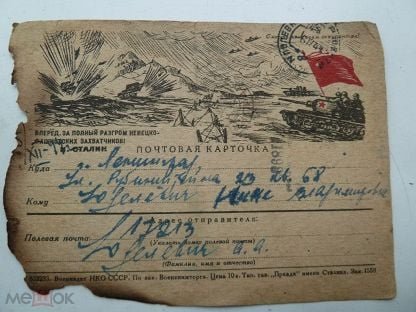 Смерть немецким оккупантам!
ВПЕРЕД, ЗА ПОЛНЫЙ РАЗГРОМ НЕМЕЦКО-
ФАШИСТСКИХ ЗАХВАТЧИКОВ!
И. СТАЛИН
ПОЧТОВАЯ КАРТОЧКА
Куда г. Ленинград
ул. Рубинштейна 23 кв. 68
Кому Юделевич Нине Владимировне
Адрес отправителя:
Полевая почта: 17213
(Указать номер полевой почты)
Юделевич А.А.
(Фамилия, имя и отчество)
Воениздат НКО СССР. По зак. Военкниготорга. Цена 10 к. Тип. газ. „Правда" имени Сталина. Зак. 1550
мешок